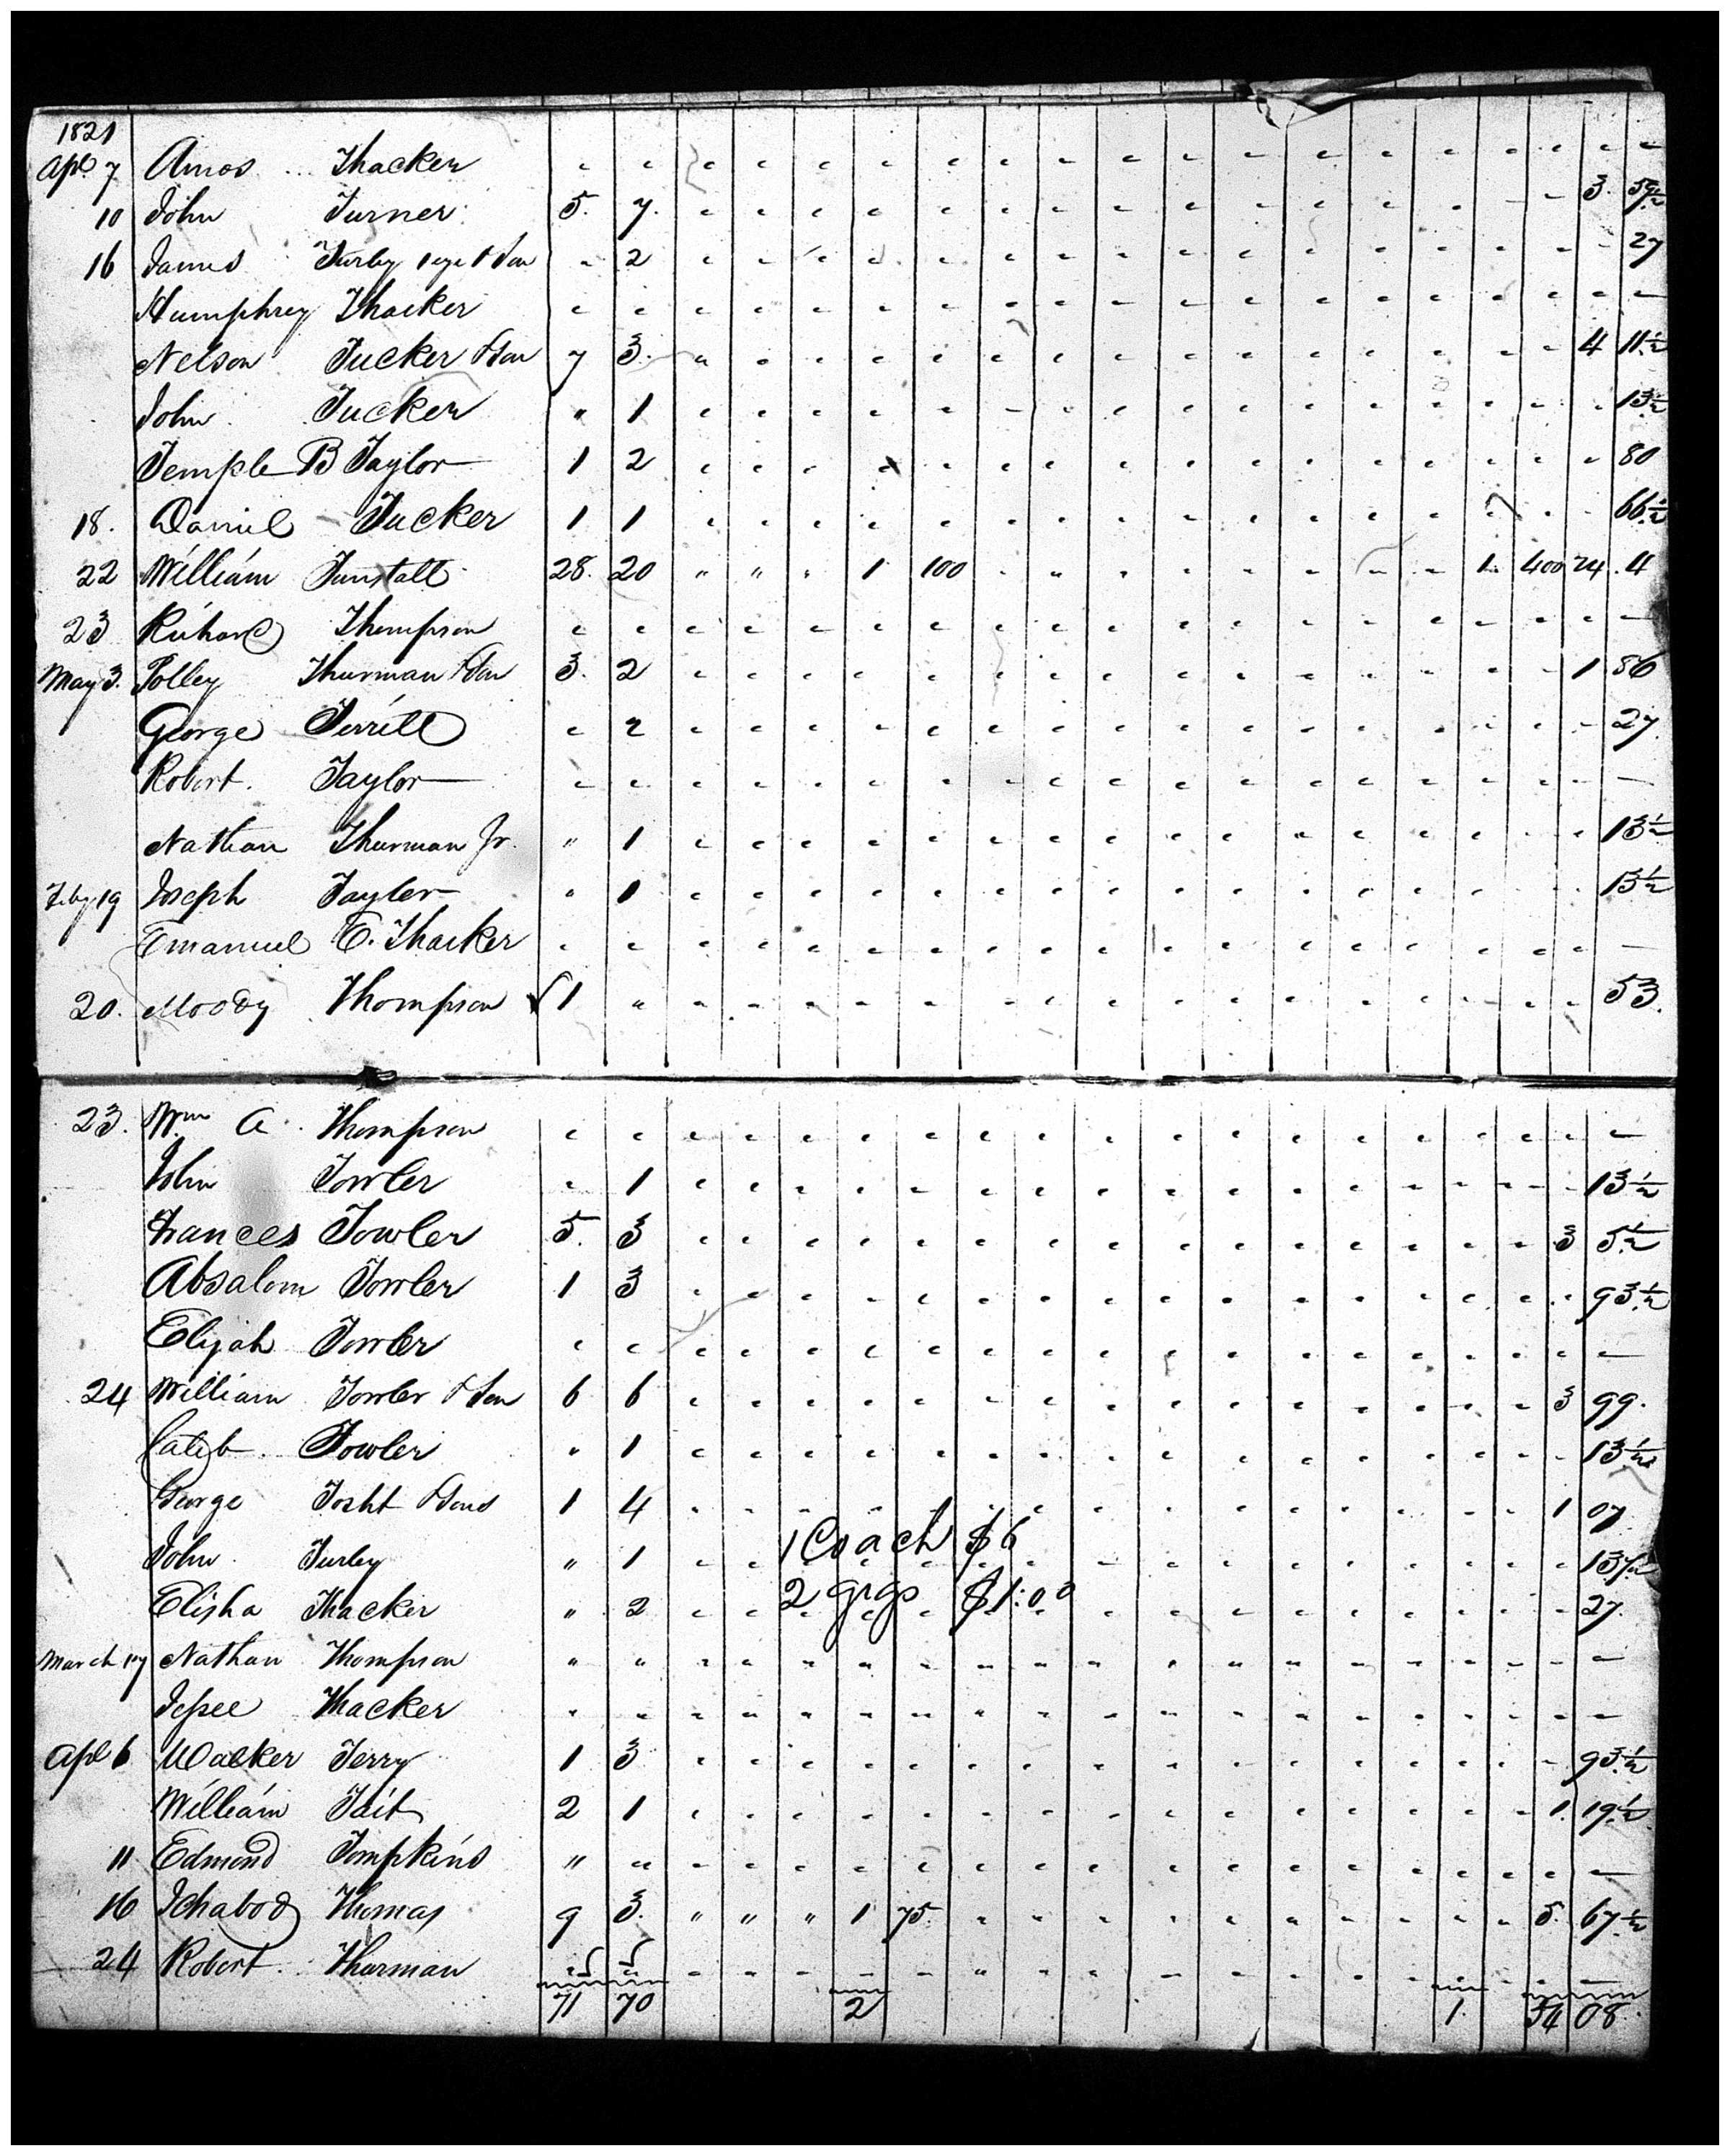 1821
Apl 7 Amos Thacker - - - - - - - - - - - - - - - - - - -
10 John Turner 5. 7. - - - - - - - - - - - - - - - 3.
16 James Turley & Son - 2 - - - - - - - - - - - - - - - - 27
Humphrey Thacker - - - - - - - - - - - - - - - - - - -
Nelson Tucker & Son 7 3. - - - - - - - - - - - - - - - 4 11½
John Tucker " 1 - - - - - - - - - - - - - - - - 13½
Temple B Taylor 1 2 - - - - - - - - - - - - - - - - 80
18. Daniel Tucker 1 1 - - - - - - - - - - - - - - - - 66½
22 William Tunstall 28. 20 " " " 1 100 - - - - - - - - 1. 400 24 .4
23 Richard Thompson - - - - - - - - - - - - - - - - - - -
May 3. Polley Thurman & Son 3. 2 - - - - - - - - - - - - - - - 1 86
George Terrill - 2 - - - - - - - - - - - - - - - - 27
Robert. Taylor - - - - - - - - - - - - - - - - - - -
Nathan Thurman Jr. " 1 - - - - - - - - - - - - - - - - 13½
Feby 19 Joseph Taylor " 1 - - - - - - - - - - - - - - - - 13½
Emanuel E. Thacker - - - - - - - - - - - - - - - - - - -
20. Moody Thompson √ 1 " - - - - - - - - - - - - - - - - 53.
23. Wm A. Thompson - - - - - - - - - - - - - - - - - - -
John Towler - 1 - - - - - - - - - - - - - - - - 13½
Frances Towler 5. 3 - - - - - - - - - - - - - - - 3 5½
Absalom Towler 1 3 - - - - - - - - - - - - - - - - 93½
Elijah Towler - - - - - - - - - - - - - - - - - - -
24 William Towler & Son 6 6 - - - - - - - - - - - - - - - 3 99.
Caleb. Towler " 1 - - - - - - - - - - - - - - - - 13½
George Tosht & Sons 1 4 - - - - - - - - - - - - - - - 1 07
1 Coach $6
John. Turley " 1 - - - - - - - - - - - - - - - - 13½
2 gigs $1:00
Elisha Thacker " 2 - - - - - - - - - - - - - - - - 27.
March 17 Nathan Thompson " " - - - - - - - - - - - - - - - - -
Jessee Thacker - - - - - - - - - - - - - - - - - - -
Apl 6 Walker Terry 1 3 - - - - - - - - - - - - - - - - 93½
William Tait 2 1 - - - - - - - - - - - - - - - 1. 19½
11 Edmond Tompkins " - - - - - - - - - - - - - - - - - -
16 Ichabod Thomas 9 3. " " " 1 75. - - - - - - - - - - 5. 67½
24 Robert. Thurman - - - - - - - - - - - - - - - - - - -
71 70 2 1. 54 08.